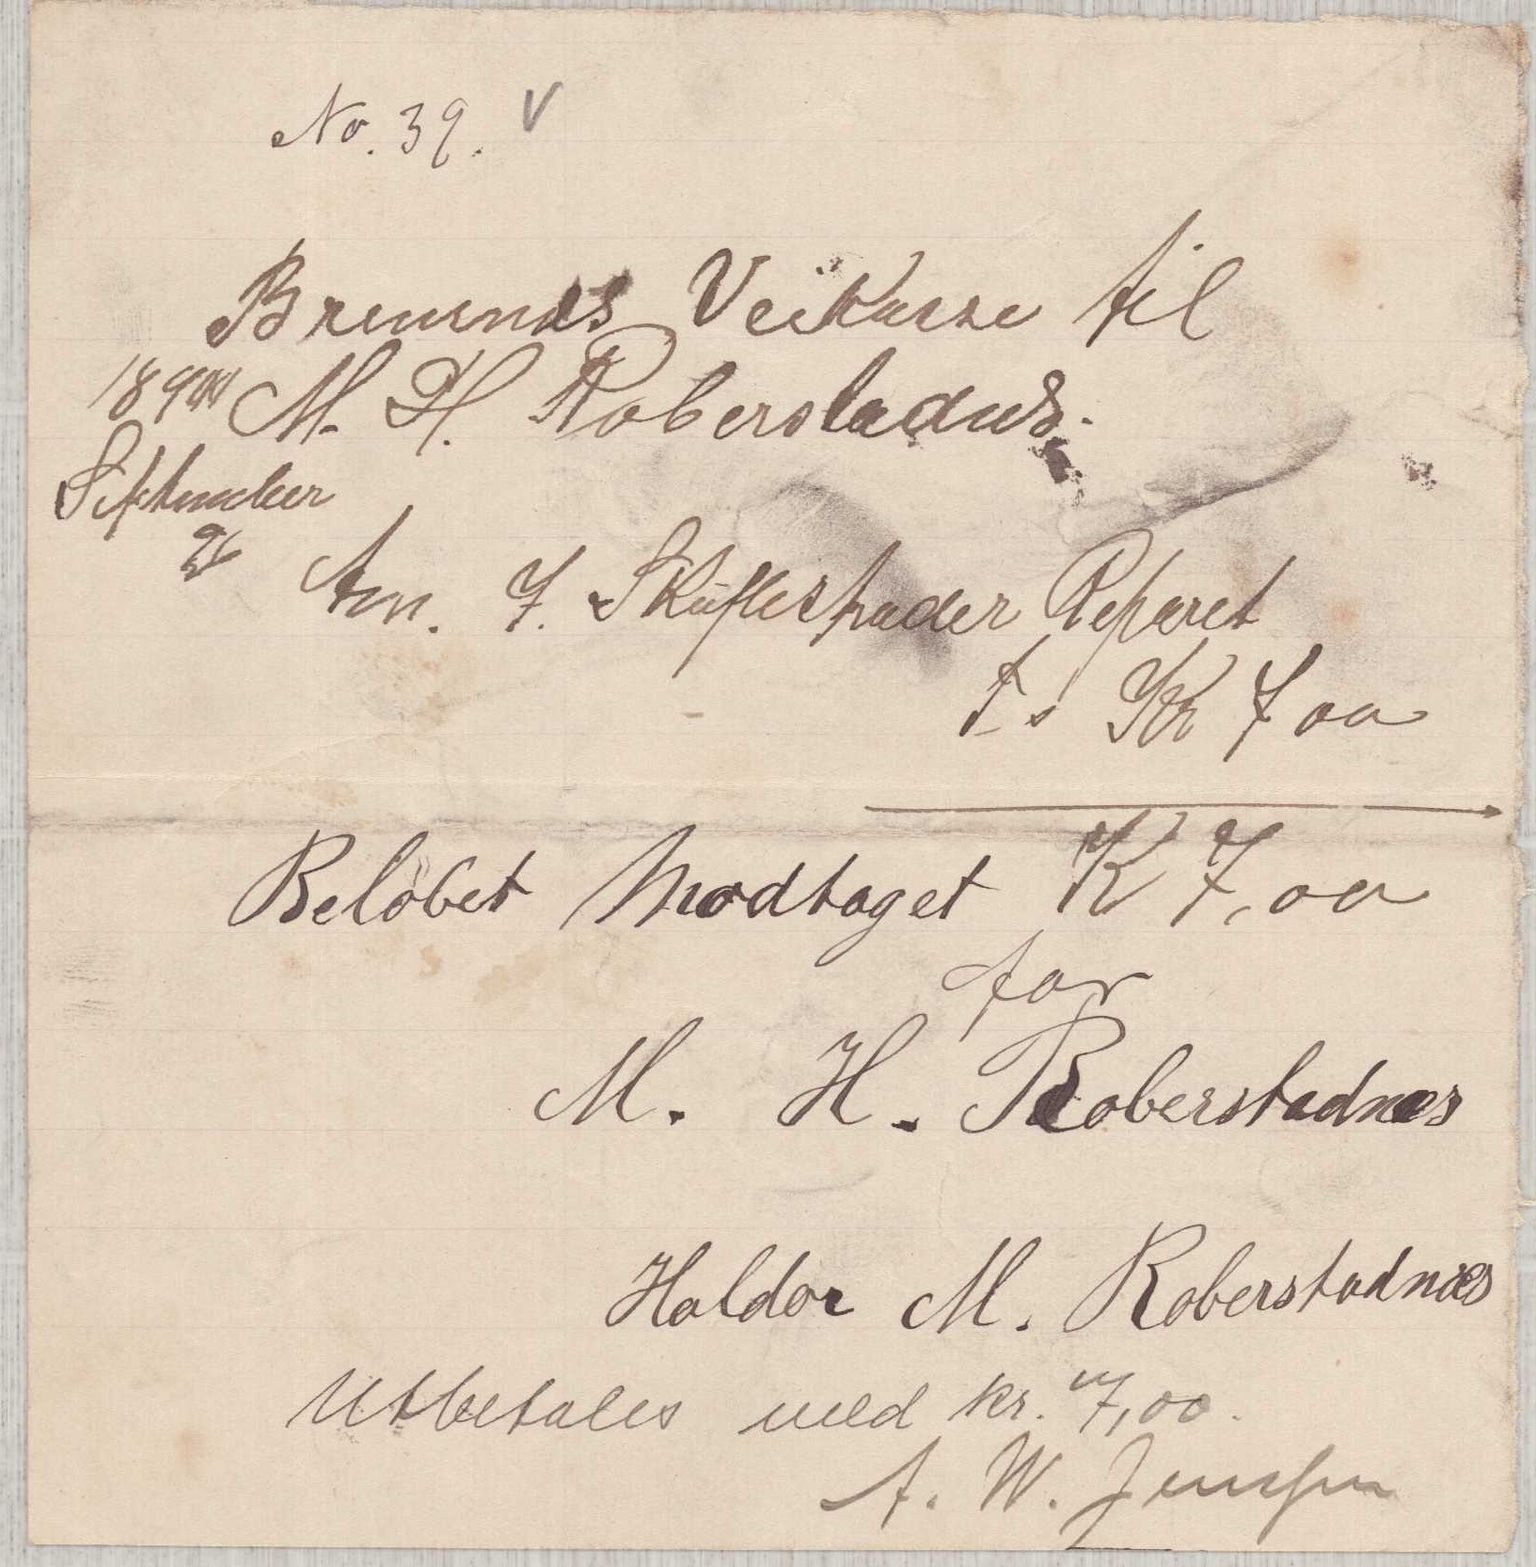 No. 39. V
Bremnes Veikasse til
189
M. H. Roberstadnes.
September
An. 7. Skuflespader Reparet
Kr 7 00
Beløbet Modtaget K 7,00
for
M. H. Roberstadnæs
Haldor M. Roberstadnæs
Utbetales med kr. 7,00.
A. W. Jensen